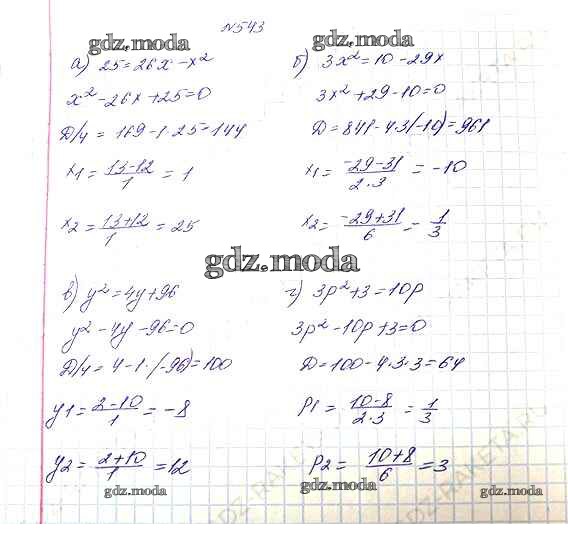 №543
gdz.moda
gdz.moda
а) 25=26x-x²
x²-26x+25=0
D/4 = 169-1·25=144
x1 = (13-12)/1 = 1
x2 = (13+12)/1 = 25
б) 3x²=10-29x
3x²+29-10=0
D=841-4·3(-10)=961
x1 = (-29-31)/(2·3) = -10
x2 = (-29+31)/6 = 1/3
gdz.moda
в) y²=4y+96
y²-4y-96=0
D/4 = 4-1·(-96)=100
y1 = (2-10)/1 = -8
y2 = (2+10)/1 = 12
г) 3p²+3=10p
3p²-10p+3=0
D=100-4·3·3=64
p1 = (10-8)/(2·3) = 1/3
p2 = (10+8)/6 = 3
gdz.moda
gdz.moda
gdz.moda
GDZ-RAKETA.RU
GDZ-RAKETA.RU